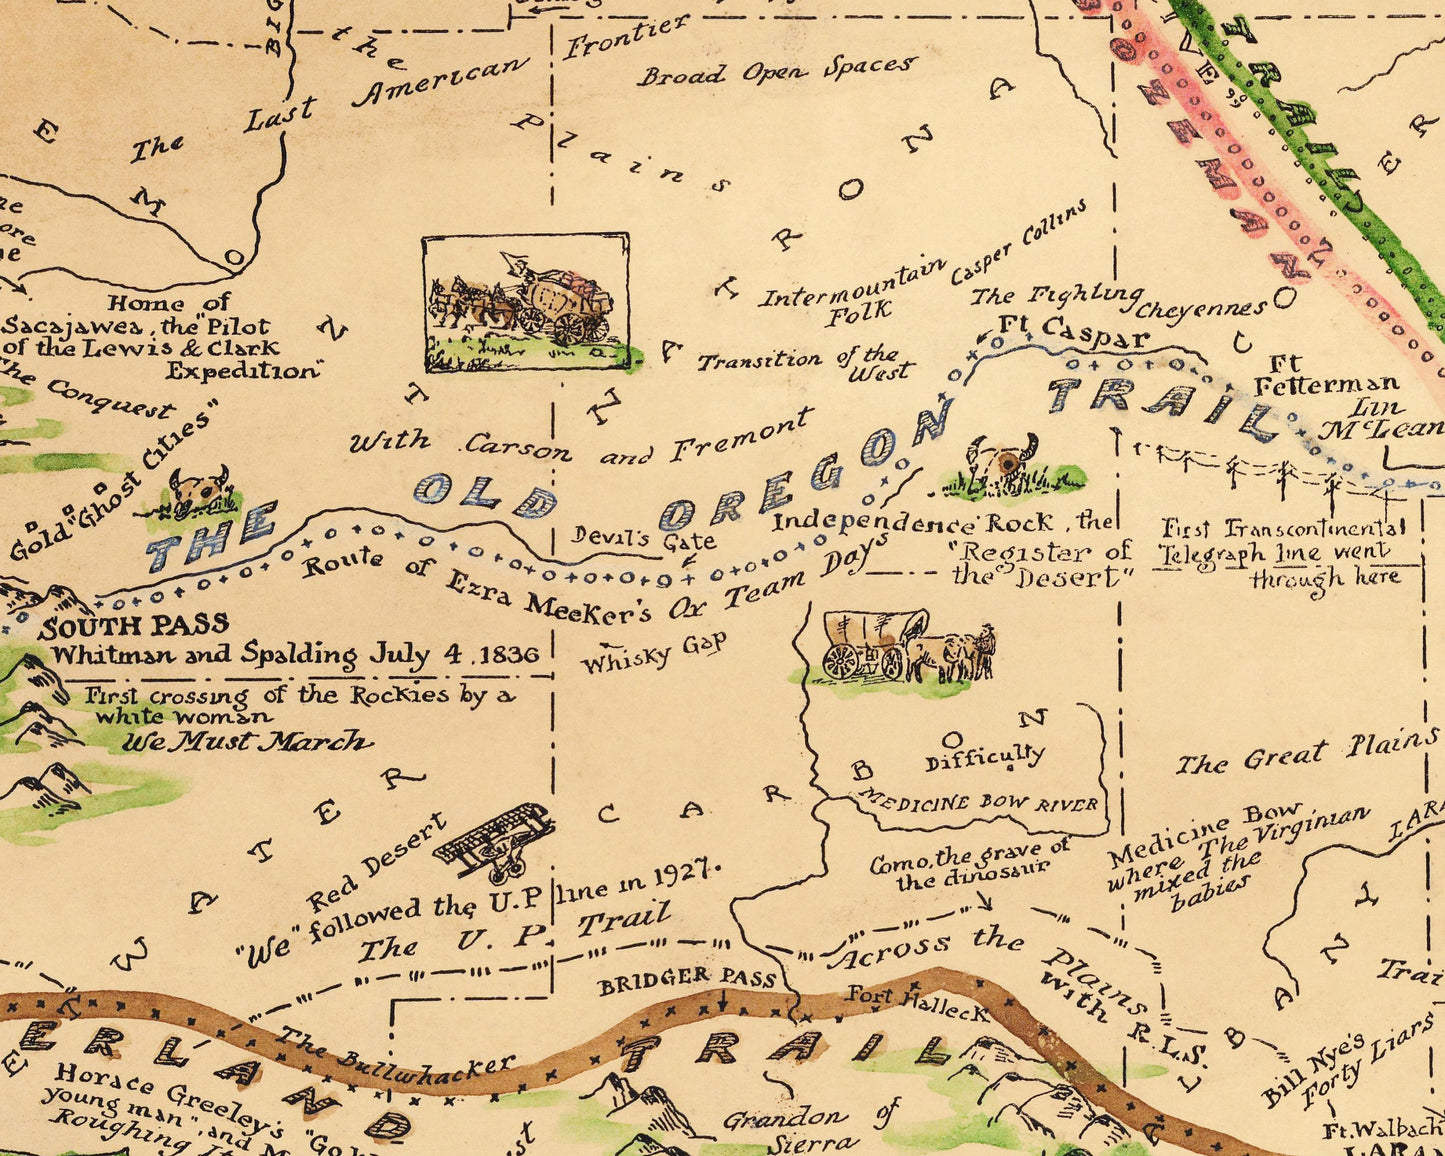 BIG
The Last American Frontier
Broad Open Spaces
Plains
TRAIL
BOZEMAN
FREMONT
NATRONA
CONVERSE
Home of
Sacajawea, the "Pilot
of the Lewis & Clark
Expedition"
The Conquest
Gold "Ghost Cities"
Intermountain
Folk
Casper Collins
The Fighting Cheyennes
Ft Caspar
Transition of the
West
Ft
Fetterman
Lin
McLean
With Carson and Fremont
THE OLD OREGON TRAIL
Devil's Gate
Independence Rock, the
"Register of
the Desert"
First Transcontinental
Telegraph line went
through here
Route of Ezra Meeker's Ox Team Days
SOUTH PASS
Whitman and Spalding July 4, 1836
First crossing of the Rockies by a
white woman
We Must March
Whisky Gap
SWEETWATER
CARBON
Difficulty
MEDICINE BOW RIVER
The Great Plains
Medicine Bow
where The Virginian
mixed the
babies
LARA
Red Desert
"We" followed the U.P line in 1927.
The U. P. Trail
Como, the grave of
the dinosaur
Across the Plains
With R.L.S.
BRIDGER PASS
Fort Halleck
ALBANY
Trai
Bill Nye's
Forty Liars
Ft. Walbach
LARA
The Bullwhacker
ERLAND TRAIL
Horace Greeley's "Go W
young man", and M
Roughing It
Grandon of
Sierra